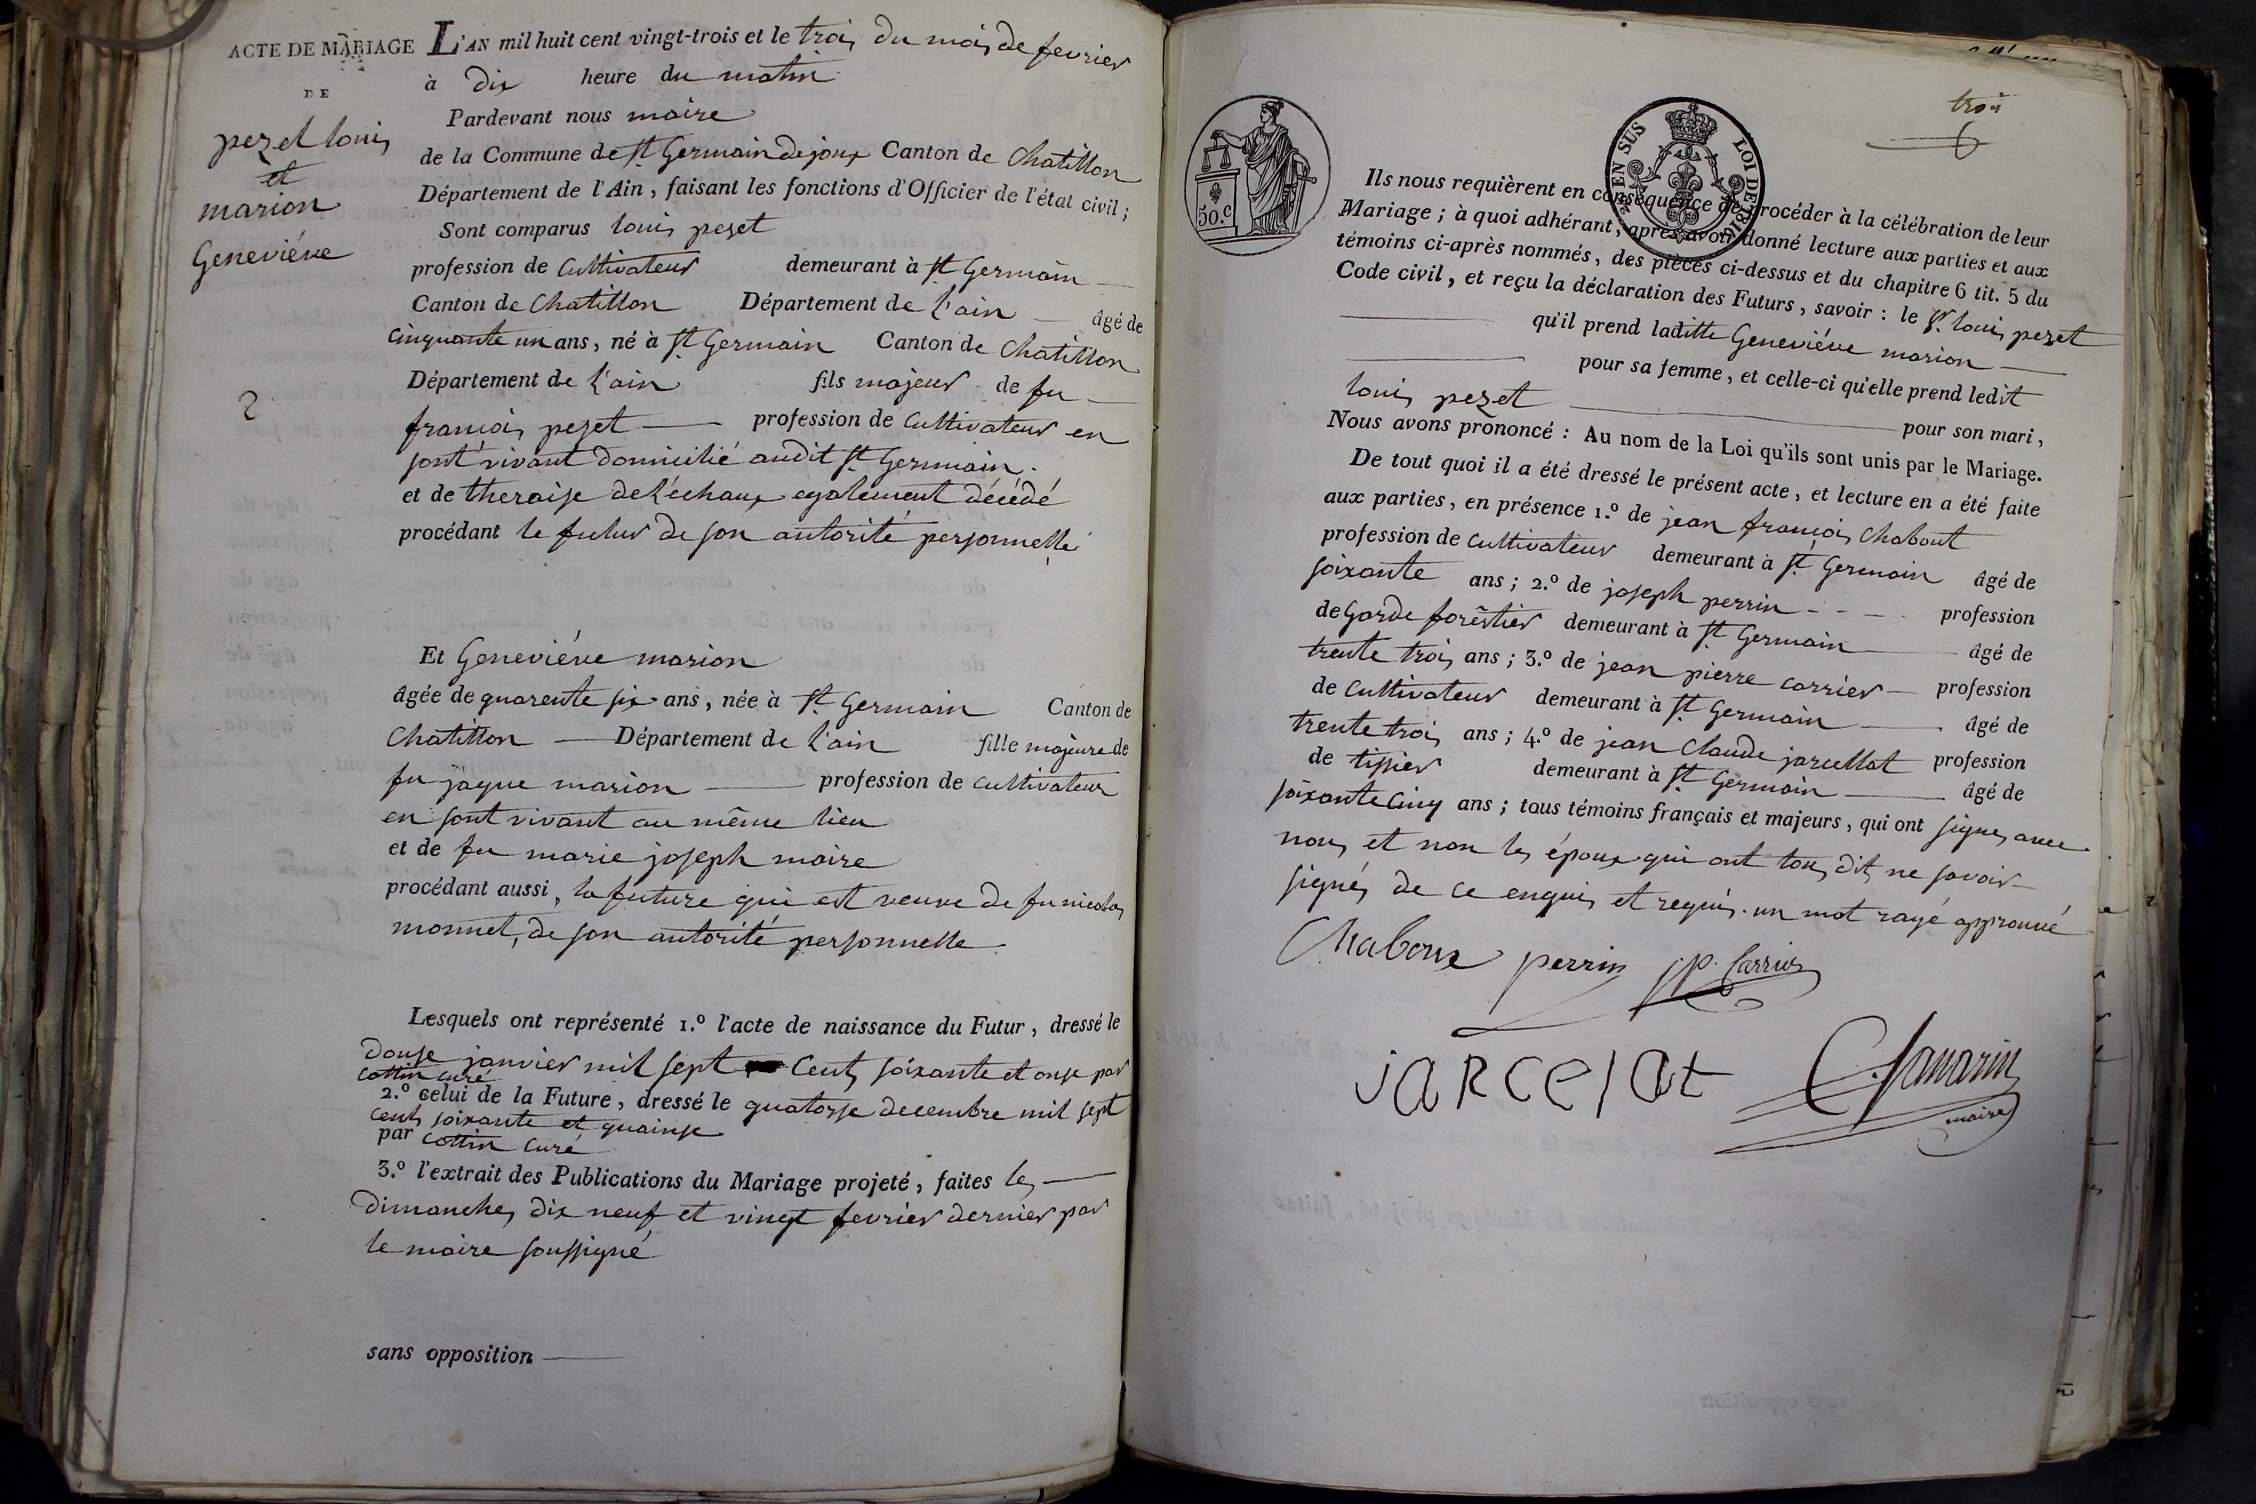 ACTE DE MARIAGE
DE
pezet louis
et
marion
Geneviéve
2
L'AN mil huit cent vingt-trois et le trois du mois de fevrier
à dix heure du matin
Pardevant nous maire
de la Commune de St Germain de joux Canton de Chatillon
Département de l'Ain, faisant les fonctions d'Officier de l'état civil;
Sont comparus louis pezet
profession de Cultivateur demeurant à St Germain
Canton de Chatillon Département de l'ain âgé de
Cinquante un ans, né à St Germain Canton de Chatillon
Département de l'ain fils majeur de fu
francois pezet profession de Cultivateur en
sont vivant domicilié audit St Germain.
et de theraise de l'échaux egalement décédé
procédant le futur de son autorité personnelle
Et Geneviéve marion
âgée de quarente six ans, née à St Germain Canton de
Chatillon Département de l'ain fille majeure de
fu jaque marion profession de cultivateur
en sont vivant au même lieu
et de fu marie joseph maire
procédant aussi, la future qui est veuve de fu nicolas
monnet, de son autorité personnelle.
Lesquels ont représenté 1.º l'acte de naissance du Futur, dressé le
douse janvier mil sept Cents soixante et onse par
Cottin curé
2.º celui de la Future, dressé le quatorse decembre mil sept
cents soixante et quainse
par Cottin Curé
3.º l'extrait des Publications du Mariage projeté, faites les
dimanches dix neuf et vingt fevrier dernier par
le maire soussigné
sans opposition
trois
50.c
EN SUS LOI DE 1816
Ils nous requièrent en conséquence de procéder à la célébration de leur
Mariage; à quoi adhérant, après avoir donné lecture aux parties et aux
témoins ci-après nommés, des pièces ci-dessus et du chapitre 6 tit. 5 du
Code civil, et reçu la déclaration des Futurs, savoir: le Sr. louis pezet
qu'il prend laditte Geneviéve marion
pour sa femme, et celle-ci qu'elle prend ledit
louis pezet pour son mari,
Nous avons prononcé: Au nom de la Loi qu'ils sont unis par le Mariage.
De tout quoi il a été dressé le présent acte, et lecture en a été faite
aux parties, en présence 1.º de jean francois Chabout
profession de Cultivateur demeurant à St Germain âgé de
soixante ans; 2.º de joseph perrin profession
de Garde forêstier demeurant à St Germain âgé de
trente trois ans; 3.º de jean pierre carrier profession
de Cultivateur demeurant à St Germain âgé de
trente trois ans; 4.º de jean Claude jarcellat profession
de tissier demeurant à St Germain âgé de
soixante Cinq ans; tous témoins français et majeurs, qui ont signes avec
nous et non les époux qui ont tous dit ne savoir
signés de ce enquis et requis. un mot rayé approuvé
Chaboux perrin jp. Carrier
jARCelAt C. Savarin
maire